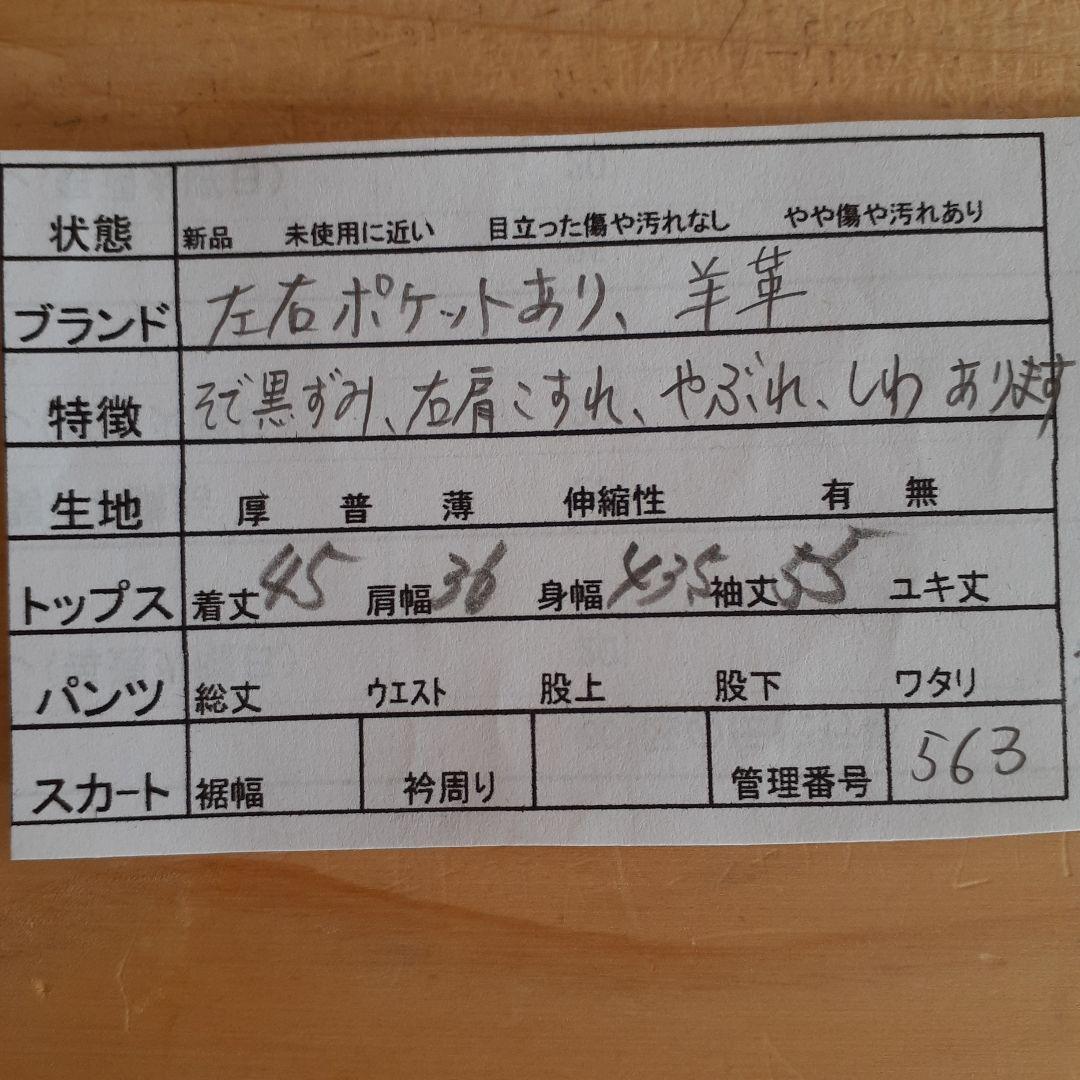 状態 新品 未使用に近い 目立った傷や汚れなし やや傷や汚れあり
ブランド 左右ポケットあり、羊革
特徴 そで黒ずみ、右肩こすれ、やぶれ、しわ あります
生地 厚 普 薄 伸縮性 有 無
トップス 着丈45 肩幅36 身幅43.5 袖丈55 ユキ丈
パンツ 総丈 ウエスト 股上 股下 ワタリ
スカート 裾幅 衿周り 管理番号 563